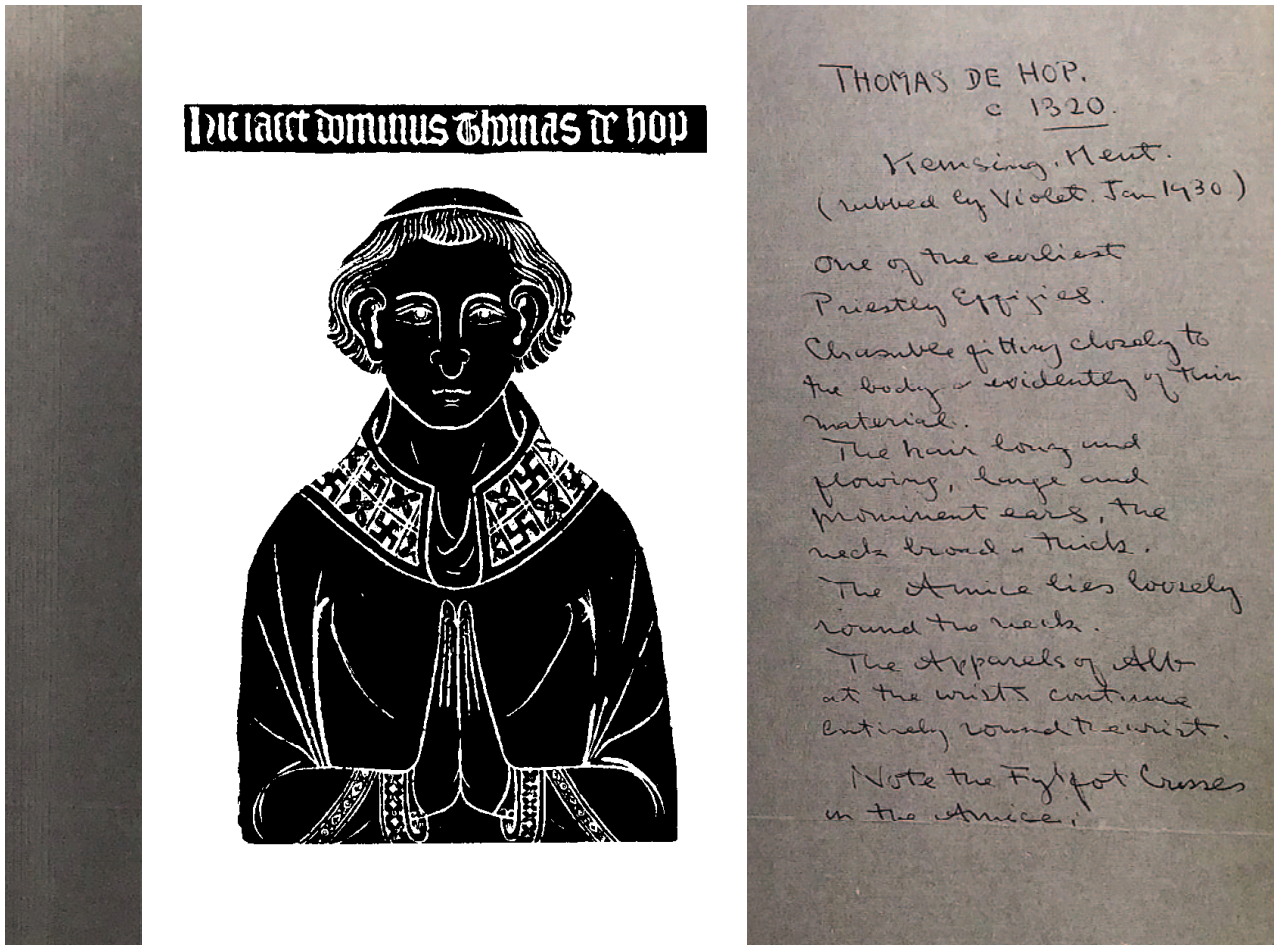 Hic iacet dominus Thomas de hop
THOMAS DE HOP.
c 1320.
Kemsing. Kent.
(rubbed by Violet. Jan 1930)
One of the earliest
Priestly Effigies.
Chasuble fitting closely to
the body & evidently of thin
material.
The hair long and
flowing, large and
prominent ears, the
neck broad & thick.
The Amice lies loosely
round the neck.
The Apparels of Alb
at the wrists continue
entirely round the wrist.
Note the Fylfot Crosses
in the Amice.